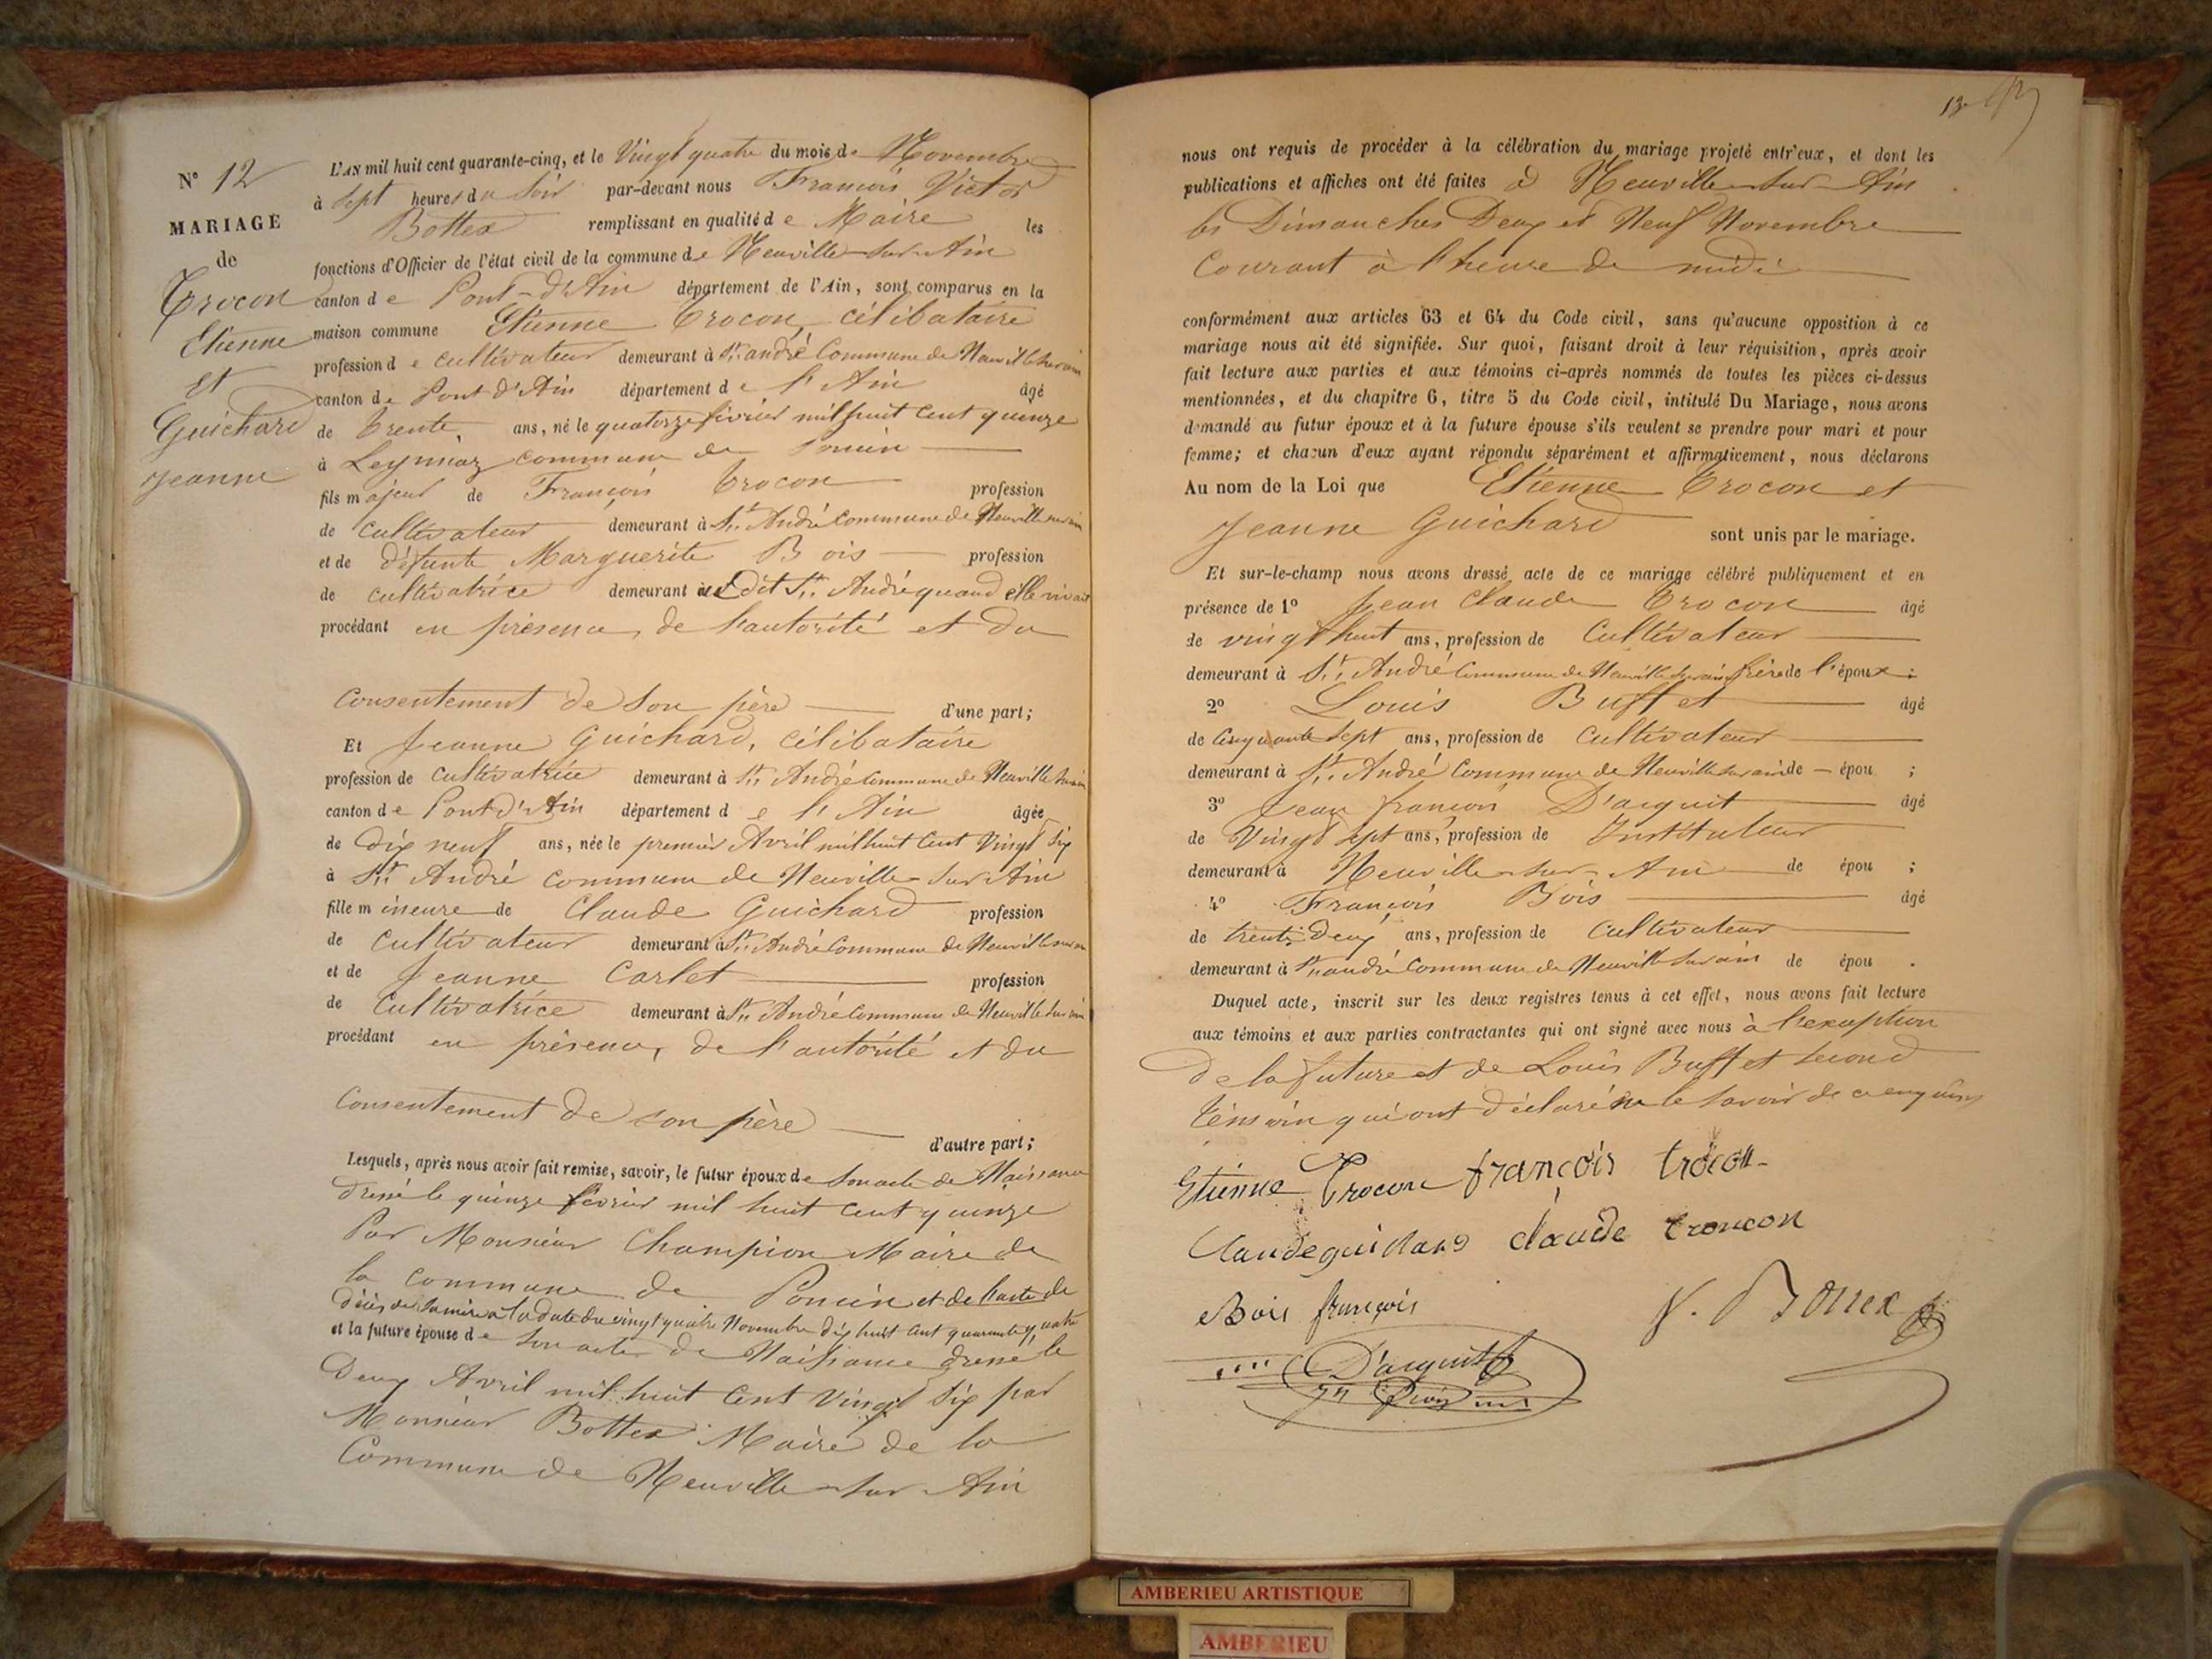 N° 12
MARIAGE
de
Trocon
Etienne
et
Guichard
Jeanne
L'AN mil huit cent quarante-cinq, et le Vingt quatre du mois de Novembre
à Sept heures du Soir par-devant nous François Victor
Bottex remplissant en qualité de Maire les
fonctions d'Officier de l'état civil de la commune de Neuville sur Ain
canton de Pont-d'Ain département de l'Ain, sont comparus en la
maison commune Etienne Trocon, célibataire
profession de cultivateur demeurant à St. andré Commune de Neuville sur ain
canton de Pont d'Ain département de l'Ain âgé
de trente, ans, né le quatorze février mil huit cent quinze
à Leymiaz commune de Poncin
fils majeur de François Trocon profession
de cultivateur demeurant à St. André commune de Neuville sur ain
et de défunte Marguerite Bois profession
de cultivatrice demeurant au dit St. André quand elle vivait
procédant en présence, de l'autorité et du
Consentement de Son père d'une part;
Et Jeanne Guichard, célibataire
profession de cultivatrice demeurant à St. André commune de Neuville sur ain
canton de Pont d'Ain département de l'Ain âgée
de dix neuf ans, née le premier Avril mil huit Cent Vingt Six
à St. André commune de Neuville sur Ain
fille mineure de Claude Guichard profession
de Cultivateur demeurant à St. André Commune de Neuville sur ain
et de Jeanne Carlet profession
de Cultivatrice demeurant à St. André Commune de Neuville sur ain
procédant en présence, de l'autorité et du
Consentement de son père d'autre part;
Lesquels, après nous avoir fait remise, savoir, le futur époux de Son acte de Naissance
dressé le quinze février mil huit cent quinze
Par Monsieur Champion Maire de
la commune de Poncin et de l'acte de
décès de sa mère à la date du vingt quatre Novembre dix huit cent quarante quatre
et la future épouse de Son acte de Naissance dressé le
Deux Avril mil huit Cent Vingt Six par
Monsieur Bottex Maire de la
Commune de Neuville sur Ain
13
nous ont requis de procéder à la célébration du mariage projeté entr'eux, et dont les
publications et affiches ont été faites à Neuville sur Ain
les Dimanches Deux et Neuf Novembre
Courant à l'heure de midi
conformément aux articles 63 et 64 du Code civil, sans qu'aucune opposition à ce
mariage nous ait été signifiée. Sur quoi, faisant droit à leur réquisition, après avoir
fait lecture aux parties et aux témoins ci-après nommés de toutes les pièces ci-dessus
mentionnées, et du chapitre 6, titre 5 du Code civil, intitulé Du Mariage, nous avons
demandé au futur époux et à la future épouse s'ils veulent se prendre pour mari et pour
femme; et chacun d'eux ayant répondu séparément et affirmativement, nous déclarons
Au nom de la Loi que Etienne Trocon et
Jeanne Guichard sont unis par le mariage.
Et sur-le-champ nous avons dressé acte de ce mariage célébré publiquement et en
présence de 1° Jean Claude Trocon âgé
de vingt huit ans, profession de Cultivateur
demeurant à St. André Commune de Neuville sur ain frère de l'époux;
2° Louis Buffet âgé
de Cinquante Sept ans, profession de Cultivateur
demeurant à St. André Commune de Neuville sur ain de épou ;
3° Jean françois D'acquit âgé
de Vingt sept ans, profession de Instituteur
demeurant à Neuville sur Ain de épou ;
4° François Bois âgé
de trente deux ans, profession de Cultivateur
demeurant à St. andré Commune de Neuville sur ain de épou .
Duquel acte, inscrit sur les deux registres tenus à cet effet, nous avons fait lecture
aux témoins et aux parties contractantes qui ont signé avec nous à l'exception
de la future et de Louis Buffet second
témoin qui ont déclaré ne le savoir de ce enquis
Etienne Trocon françois trocon
Claude guichard claude troncon
Bois françois V. Bottex
D'acquit
AMBERIEU ARTISTIQUE
AMBERIEU